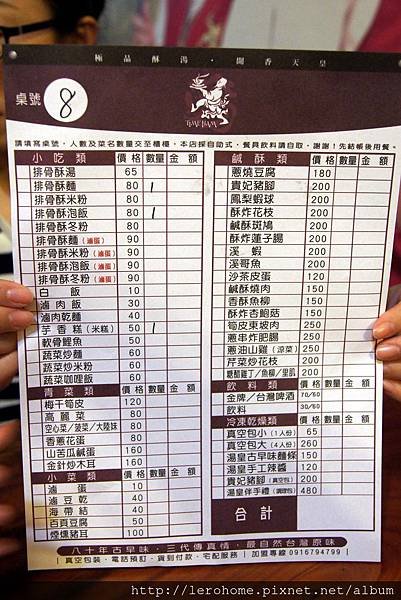 極品酥湯・聞香天皇
桌號 8
TIME HAM
請填寫桌號，人數及菜名數量交至櫃檯，本店採自助式，餐具飲料請自取，謝謝！先結帳後用餐。
小吃類 價格 數量 金額
排骨酥湯 65
排骨酥麵 80 1
排骨酥米粉 80
排骨酥泡飯 80 1
排骨酥冬粉 80
排骨酥麵（滷蛋） 90
排骨酥米粉（滷蛋） 90
排骨酥泡飯（滷蛋） 90
排骨酥冬粉（滷蛋） 90
飯 10
滷肉飯 30
滷肉乾麵 40
芋香糕（米糕） 50 1
軟骨鯉魚 50
蔬菜炒麵 60
蔬菜炒米粉 60
蔬菜咖哩飯 60
青菜類 價格 數量 金額
梅干筍皮 120
高麗菜 80
空心菜／菠菜／大陸妹 80
香蔥花蛋 80
山苦瓜鹹蛋 160
金針炒木耳 160
小菜類 價格 數量 金額
滷蛋 10
滷豆乾 40
海帶結 40
百頁豆腐 50
煙燻豬耳 100
鹹酥類 價格 數量 金額
蔥燒豆腐 180
貴妃豬腳 200
鳳梨蝦球 200
酥炸花枝 200
鹹酥斑鳩 200
酥炸蓮子腸 200
溪蝦 200
溪哥魚 200
沙茶皮蛋 120
鹹酥燒肉 150
香酥魚柳 150
酥炸杏鮑菇 150
筍皮東坡肉 250
蔥串炸肥腸 250
蔥油山雞（涼菜） 250
芹菜炒花枝 200
糖醋雞丁／魚柳／里肌 200
飲料類 價格 數量 金額
金牌／台灣啤酒 70/60
飲料 30/60
冷凍乾燥類 價格 數量 金額
真空包小（1人份） 65
真空包大（4人份） 260
湯皇古早味麵條 150
湯皇手工辣醬 120
貴妃豬腳（真空包） 200
湯皇伴手禮（調理包） 480
合計
八十年古早味・三代傳真情・最自然台灣原味
｜真空包裝、電話預訂、貨到付款、宅配服務｜加盟專線 0916794799｜
http://lerohome.pixnet.net/album